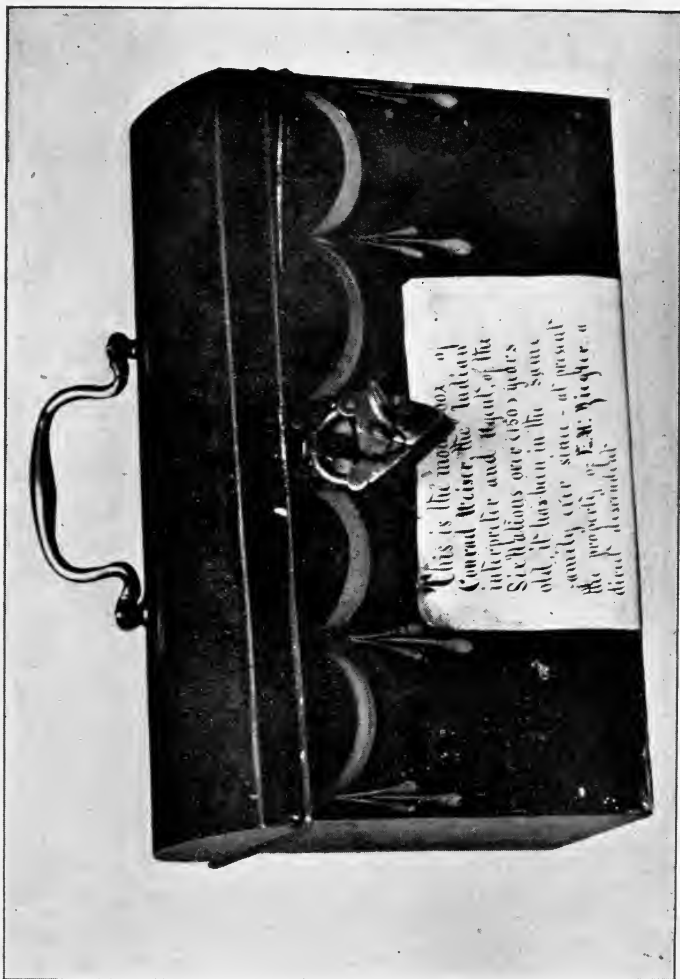 This is the box of
Conrad Weiser, the Indian
interpreter and Agent, of the
Six Nations over (150) years
old, it has been in the same
family ever since - at present
the property of Zeigler, a
direct descendent